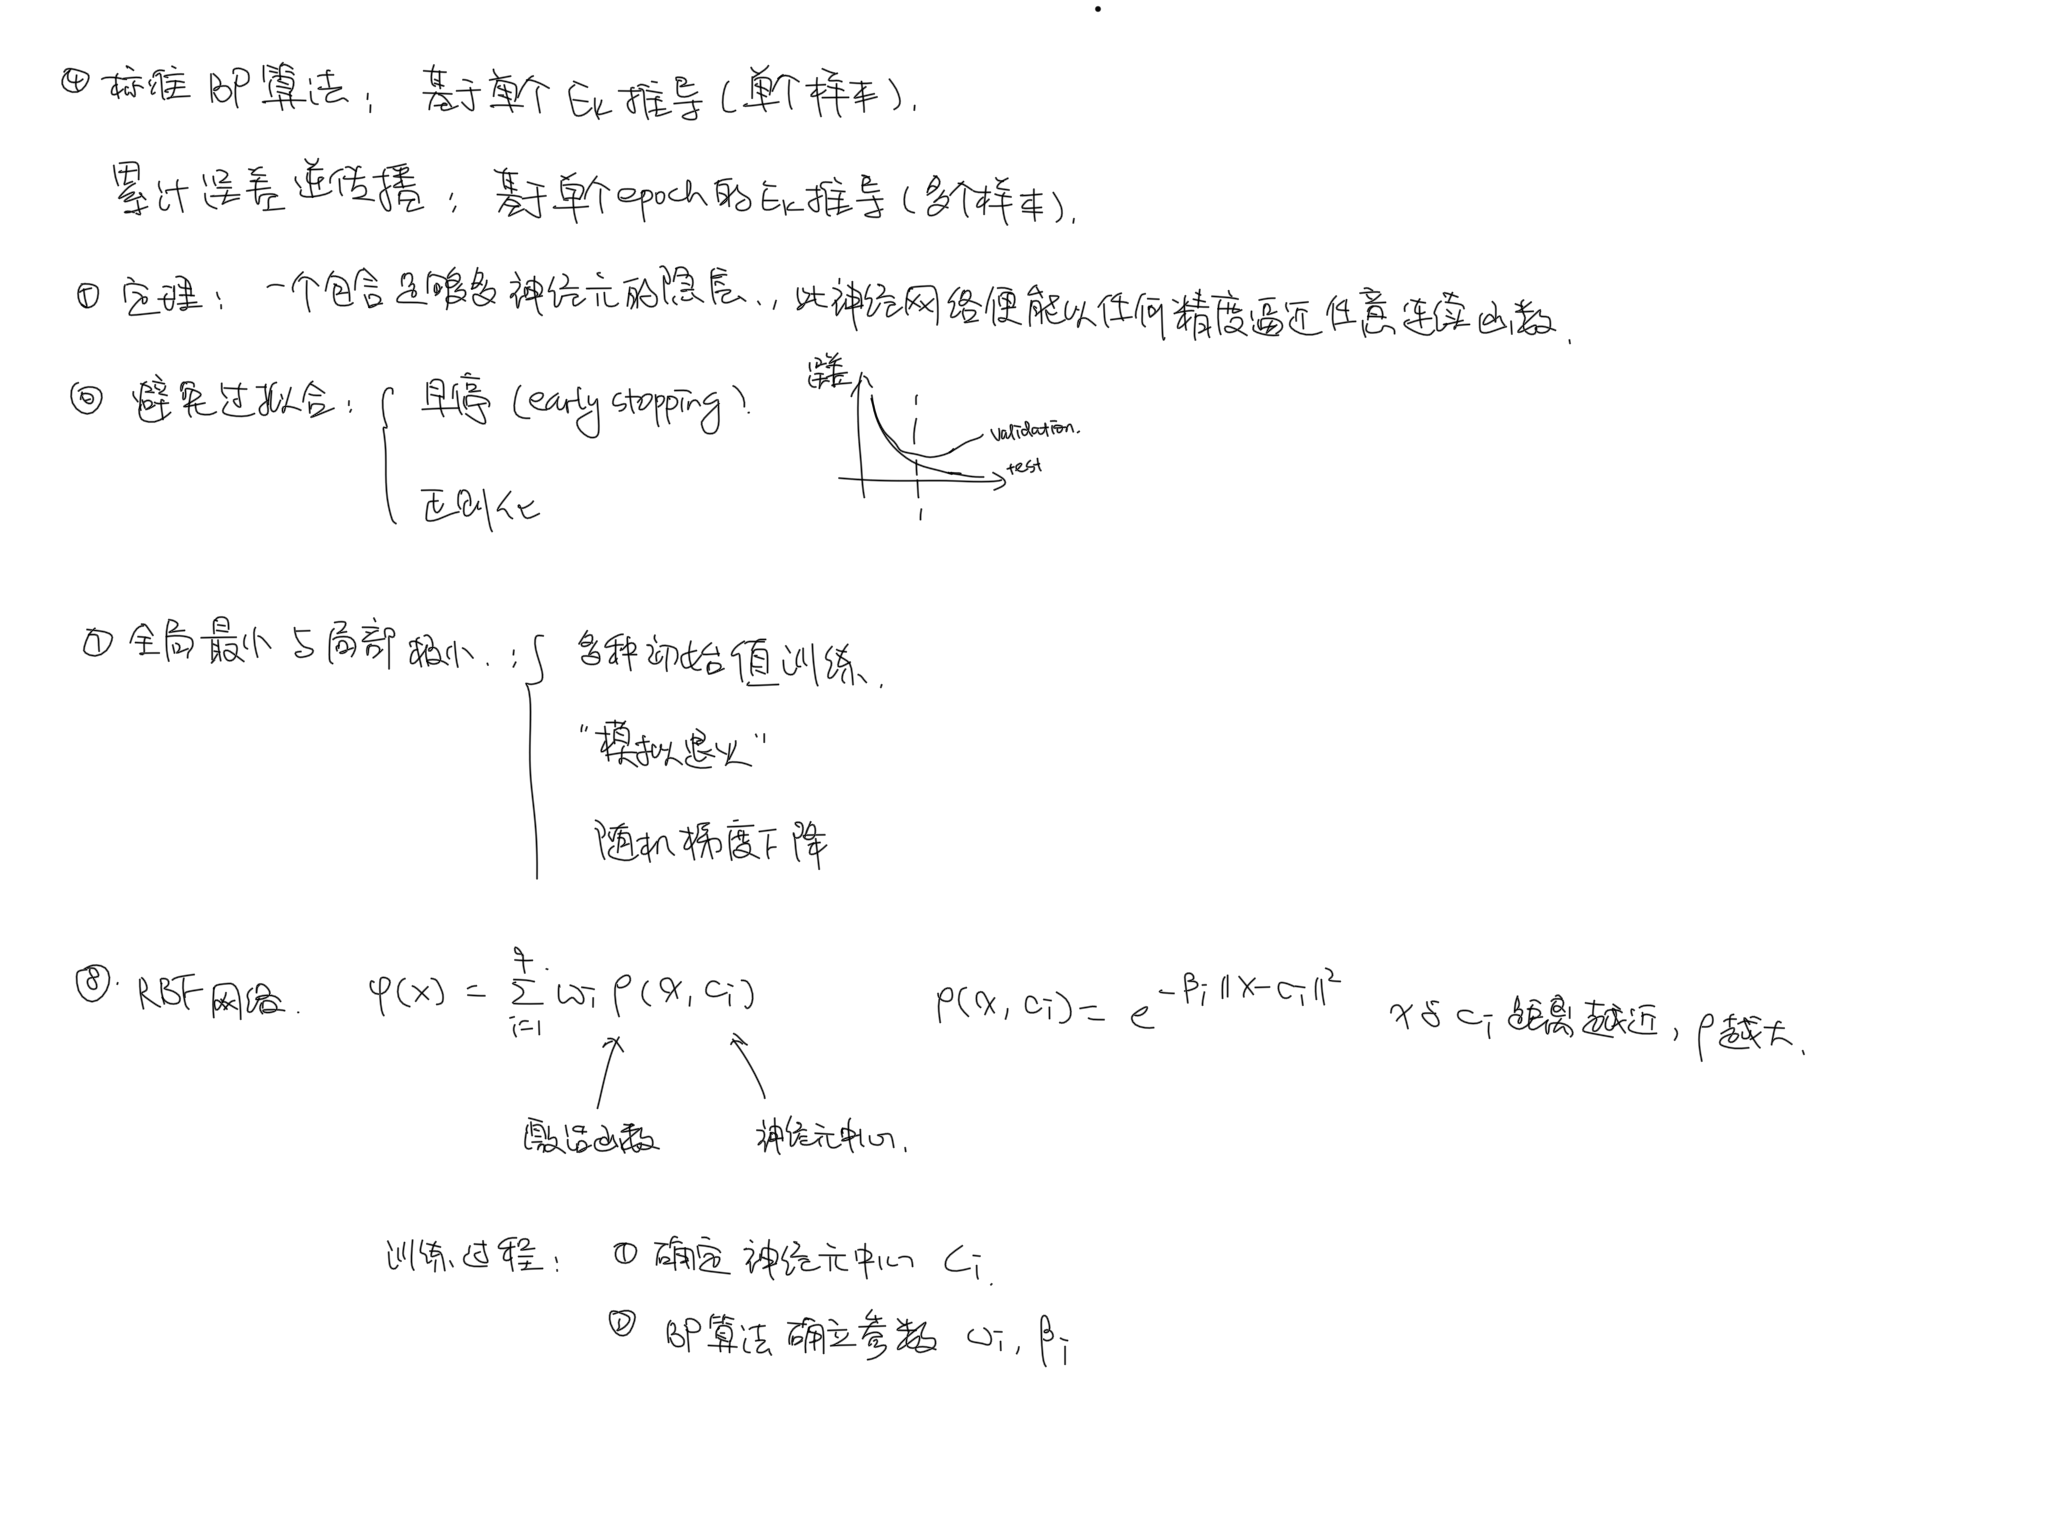 ④ 标准 BP 算法： 基于单个 Eₖ 推导（单个样本）.
累计误差逆传播： 基于单个epoch的Eₖ推导（多个样本）.
⑤ 定理： 一个包含足够多神经元的隐层.，此神经网络便能以任何精度逼近任意连续函数.
⑥ 避免过拟合： 早停（early stopping）.
误差
validation.
test
正则化
⑦ 全局最小与局部极小.： 多种初始值训练.
“模拟退火”
随机梯度下降
⑧. RBF 网络. φ(x) = Σ_{i=1}^{q} ωᵢ ρ(x, cᵢ) ρ(x, cᵢ) = e^{-βᵢ‖x-cᵢ‖²} x与cᵢ距离越近，ρ越大.
激活函数 神经元中心.
训练过程： ① 确定神经元中心 cᵢ.
② BP算法确立参数 ωᵢ, βᵢ